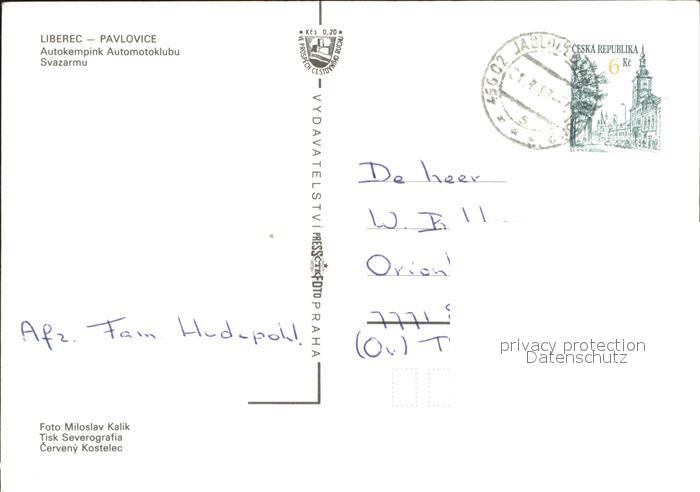 LIBEREC – PAVLOVICE
Autokempink Automotoklubu
Svazarmu
Kčs 0,20
VE PROSPĚCH CESTOVNÍHO RUCHU
466 02 JABLONEC
ČESKÁ REPUBLIKA
6 Kč
SLANÝ
VYDAVATELSTVÍ PRESSFOTO PRAHA
De heer
W.
Orion
7771
(Ov.)
Afz. Fam. Hudepohl.
privacy protection
Datenschutz
Foto Miloslav Kalík
Tisk Severografia
Červený Kostelec